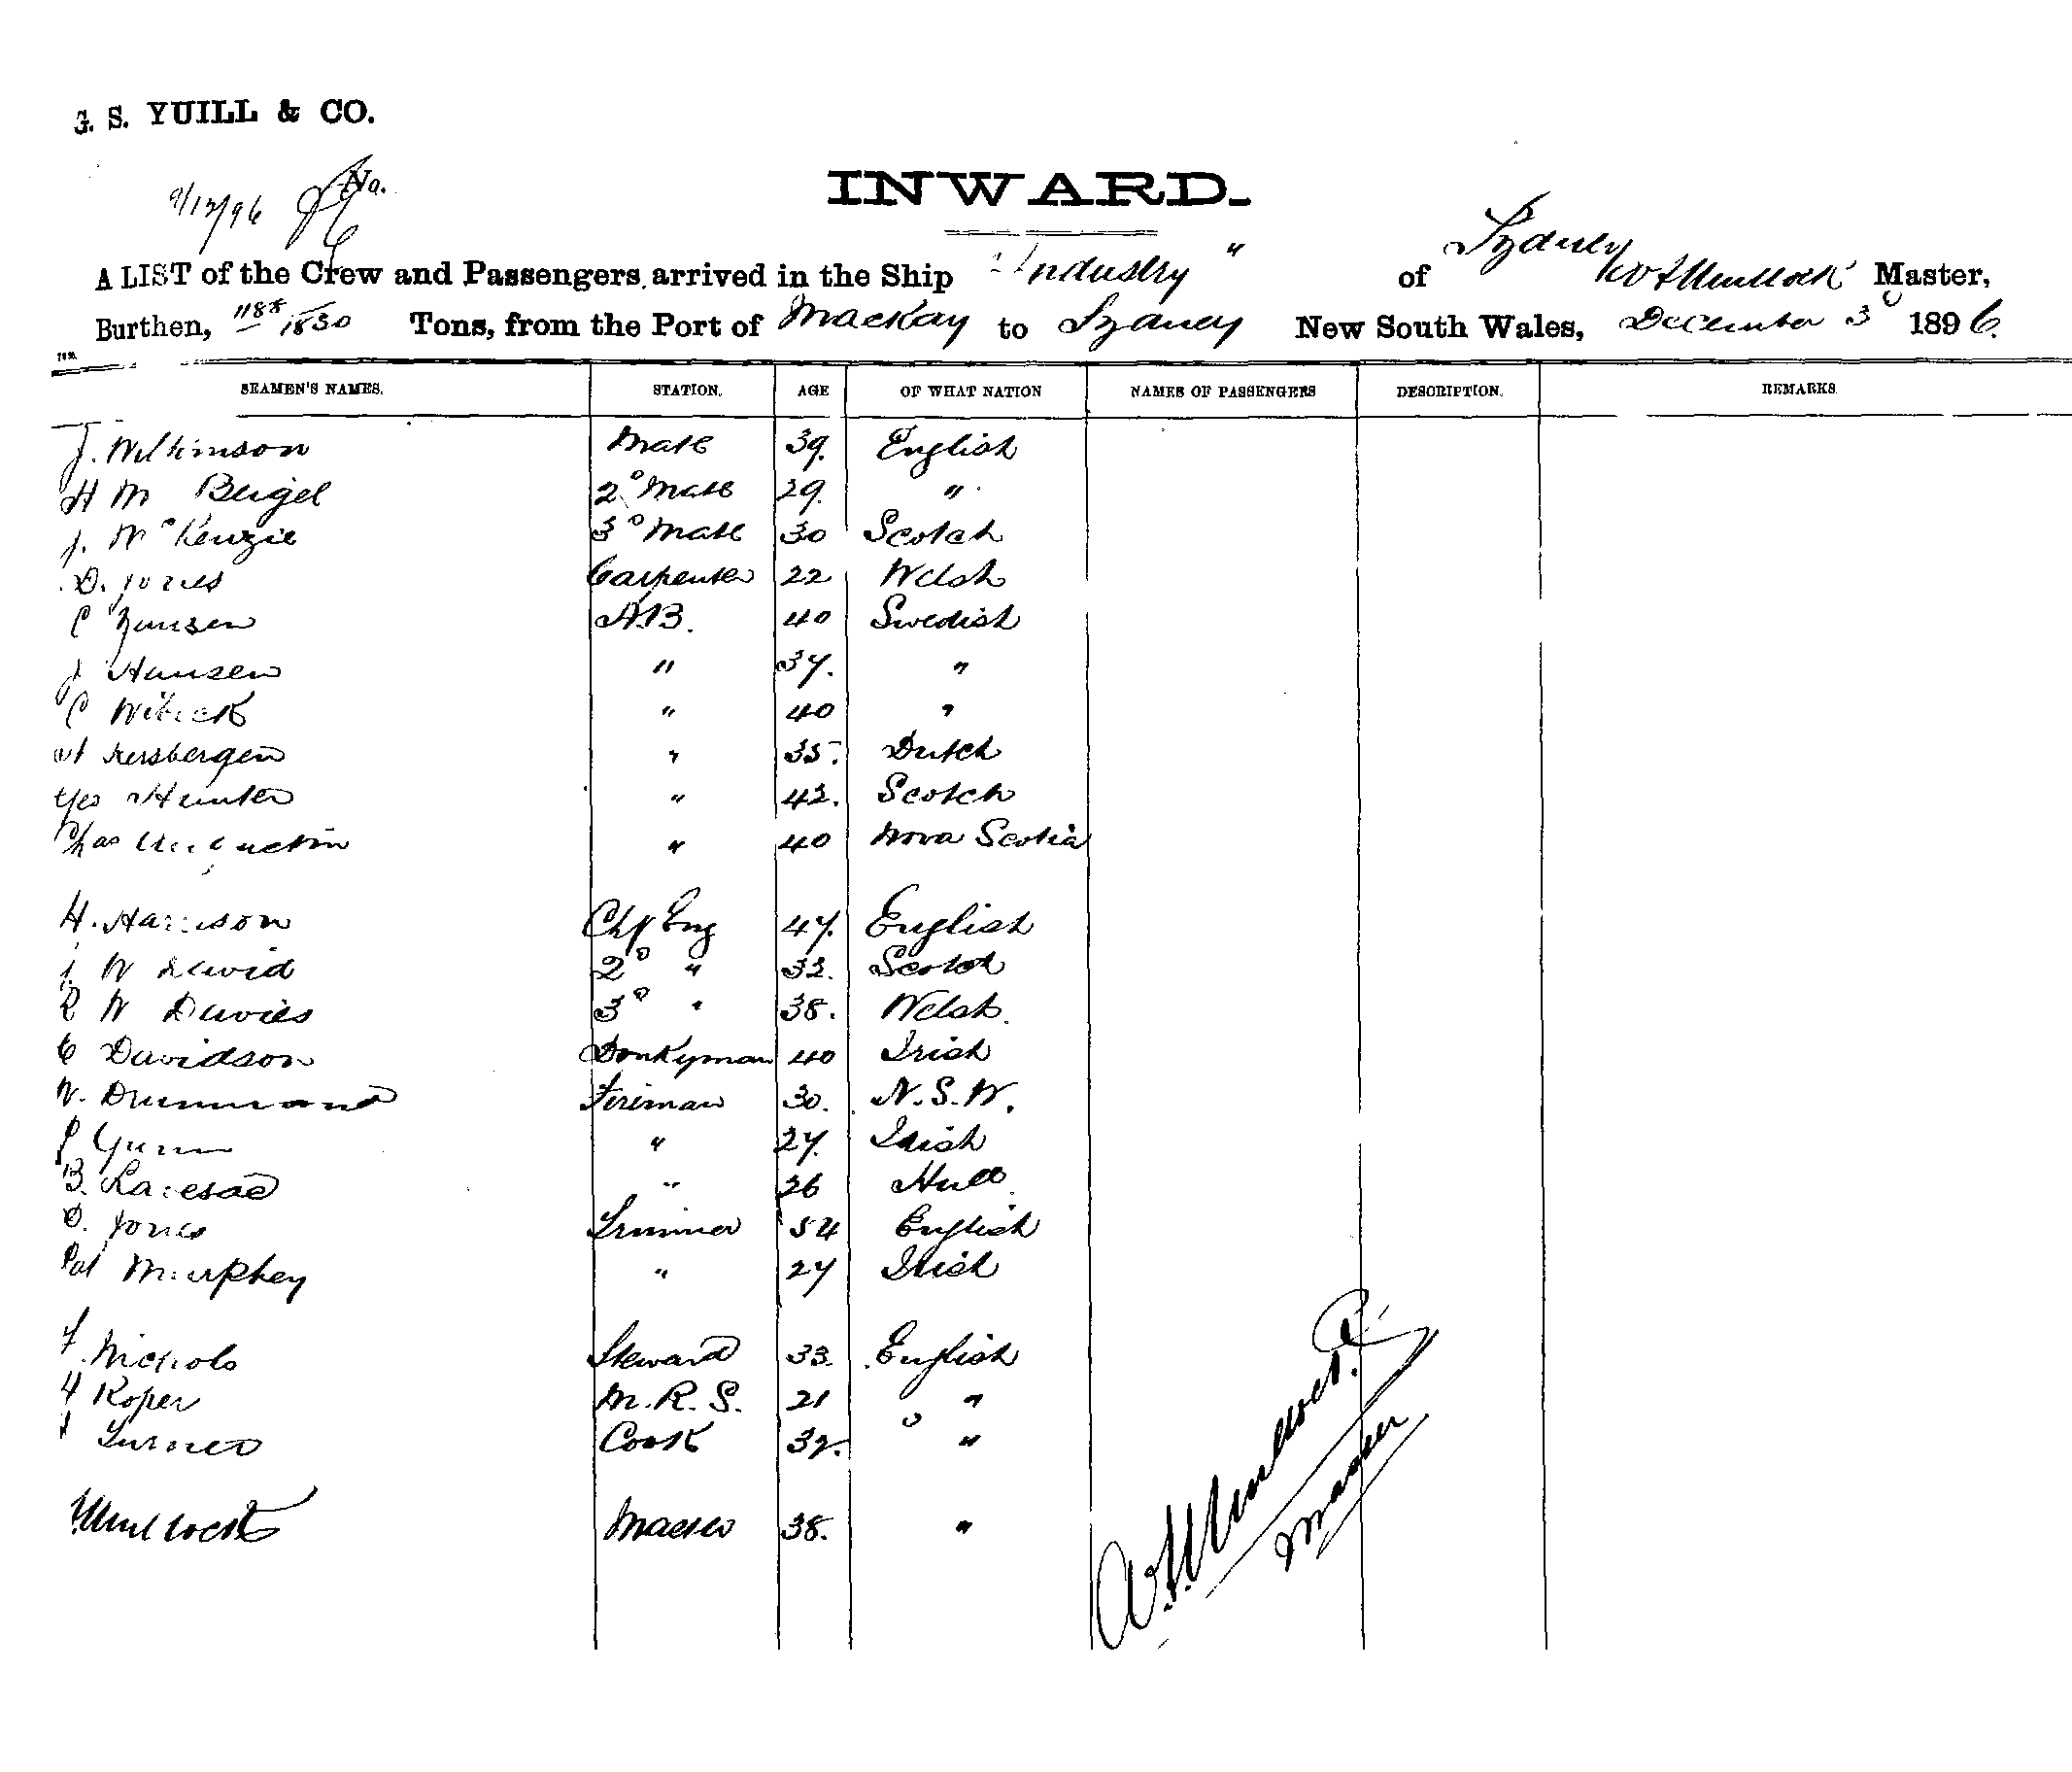 G. S. YUILL & CO.
No.
9/12/96
INWARD.
A LIST of the Crew and Passengers arrived in the Ship "Industry" of Sydney W A Mullock Master,
Burthen, 1188/1830 Tons, from the Port of Mackay to Sydney New South Wales, December 3° 1896.
SEAMEN'S NAMES. STATION. AGE OF WHAT NATION NAMES OF PASSENGERS DESCRIPTION. REMARKS
J. Wilkinson Mate 39. English
H M Beigel 2° Mate 29. "
J. McKenzie 3° Mate 30 Scotch
D. Jones Carpenter 22 Welsh
C Jansen A.B. 40 Swedish
J Hansen " 37. "
C " 40 "
Kersbergen " 35. Dutch
Geo Hunter " 42. Scotch
Chas " 40 Nova Scotia
H. Harrison Chf Eng 47. English
W David 2° " 32. Scotch
R W Davies 3° " 38. Welsh.
C Davidson Donkyman 40 Irish
W. Drummond Fireman 30. N.S.W.
P Gunn " 27. Irish
B. " 26 Hull
D. Jones Trimmer 54 English
Pat Murphey " 27 Irish
F. Nichols Steward 33. English
H Roper M.R.S. 21 "
Turner Cook 32. "
Mullock Master 38. "
Mullock
Master